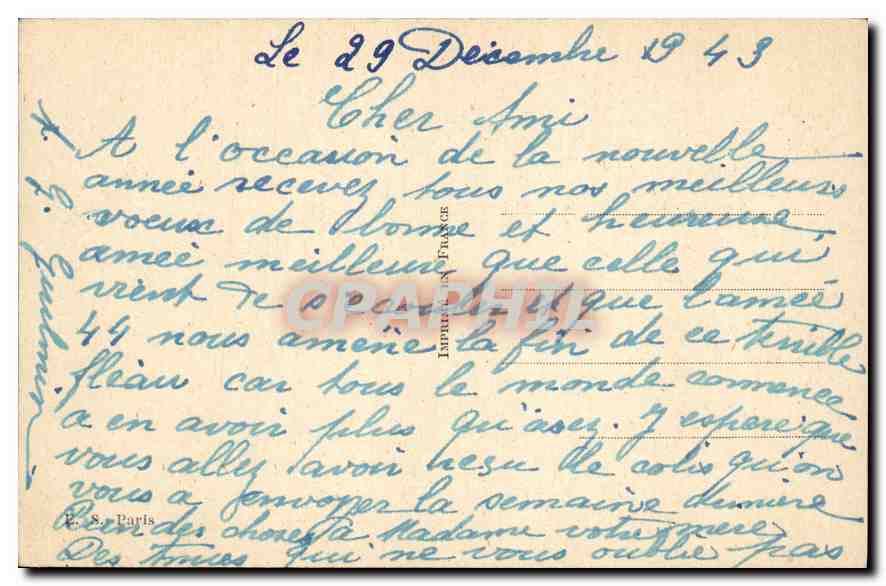 Le 29 Décembre 1943
Cher Ami
A l'occasion de la nouvelle
année recevez tous nos meilleurs
voeux de bonne et heureuse
année meilleure que celle qui
vient de s'écouler et que l'année
44 nous amène la fin de ce terrible
fléau car tous le monde commence
a en avoir plus qu'asez. J'espere que
vous allez avoir reçu le colis qu'on
vous a envoyer la semaine dernière
Bien des choses à Madame votre mère
Des tiues qui ne vous oublie pas
IMPRIMÉ EN FRANCE
P. S. Paris
CARAPHIL